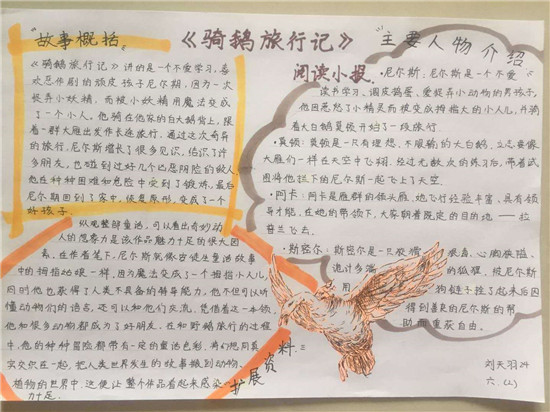 《骑鹅旅行记》
阅读小报
"故事概括"
《骑鹅旅行记》讲的是一个不爱学习,喜
欢恶作剧的顽皮孩子尼尔斯,因为一次
捉弄小妖精,而被小妖精用魔法变成
了一个小人,他骑在他家的白大鹅背上,跟
着一群大雁出发作长途旅行。通过这次奇异
的旅行,尼尔斯增长了很多见识,结识了许
多朋友,也碰到过好几个凶恶阴险的敌人
他在种种困难和危险中受到了锻炼,最后
尼尔斯回到了家中,恢复原形,变成了一个
好孩子。
纵观整部童话,可以看出奇妙动
人的想象力是该作品魅力十足的很大因
素,在作者笔下,尼尔斯就像古诞生童话故事
中的拇指姑娘一样,因为魔法变成了一个拇指小人儿,
同时他也获得了人类不具备的特异能力,他不但可以听
懂动物们的语言,还可以和他们交流,凭借着这一本领,
他和很多动物都成为了好朋友,在和野鹅旅行的过程
中,他的种种冒险都带有一定的童话色彩,巧妙地用真
实交织在一起,把人类世界发生的故事搬到动物、
植物的世界中,这便让整个作品看起来感染
力十足。
扩展资料.
"主要人物介绍
尼尔斯:尼尔斯是一个不爱
读书学习,调皮捣蛋,爱捉弄小动物的男孩子,
他因惹怒了小精灵而被变成拇指大的小人儿,并骑
着大白鹅莫顿开始了一段旅行.
·莫顿:莫顿是一只有理想、不服输的大白鹅,立志要像
大雁们一样在天空中飞翔.经过无数次的练习后,带着试
图将他拦下的尼尔斯一起飞上了天空.
·阿卡:阿卡是雁群的领头雁.她飞行经验丰富,具有领
导才能,在她的带领下,大家朝着既定的目的地——拉
普兰飞去。
·斯密尔:斯密尔是一只狡猾
狠毒、心胸狭隘、
诡计多端
的狐狸.被尼尔斯
用
狗链子拴了起来后因
得到善良的尼尔斯的帮
助而重获自由.
刘天羽24
六.(2)